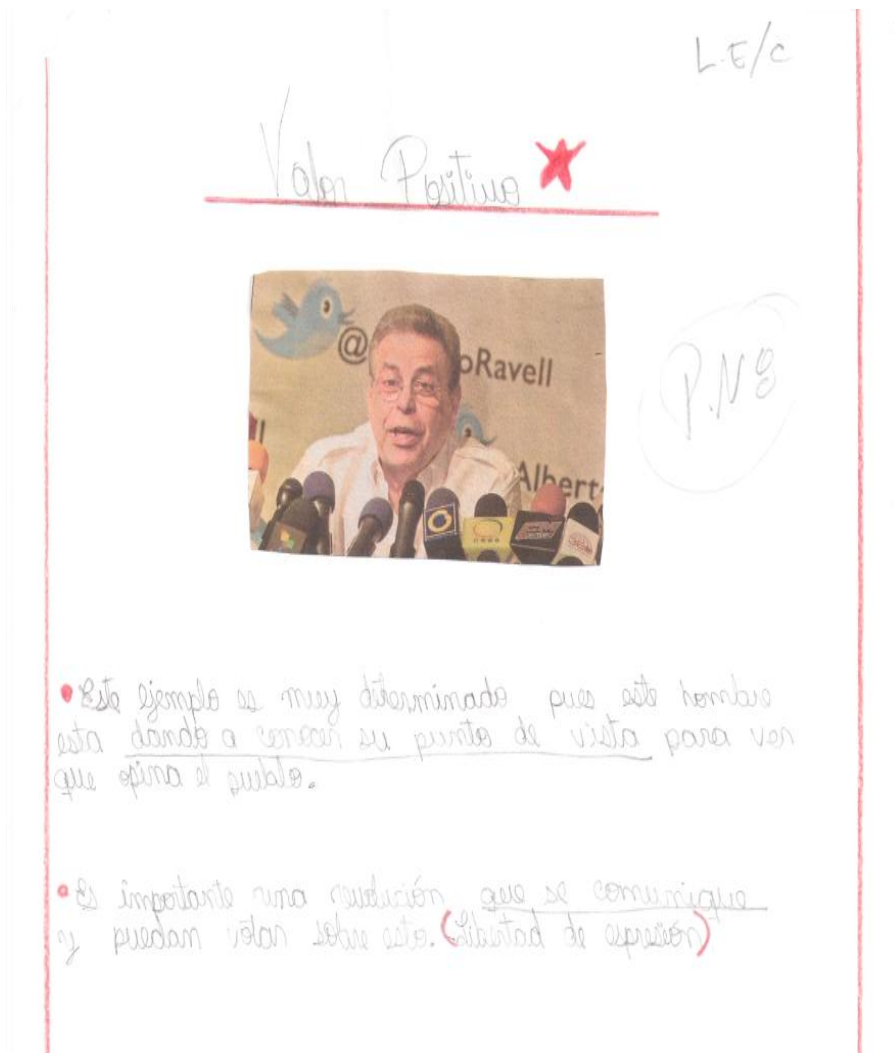 L.E/C
Valor Positivo
@
oRavell
P.N8
Albert
•Este ejemplo es muy diterminado pues este hombre
esta dando a conocer su punto de vista para ver
que opina el pueblo.
•Es importante una revolución que se comunique
y puedan votar sobre esto. (Libertad de espresión)